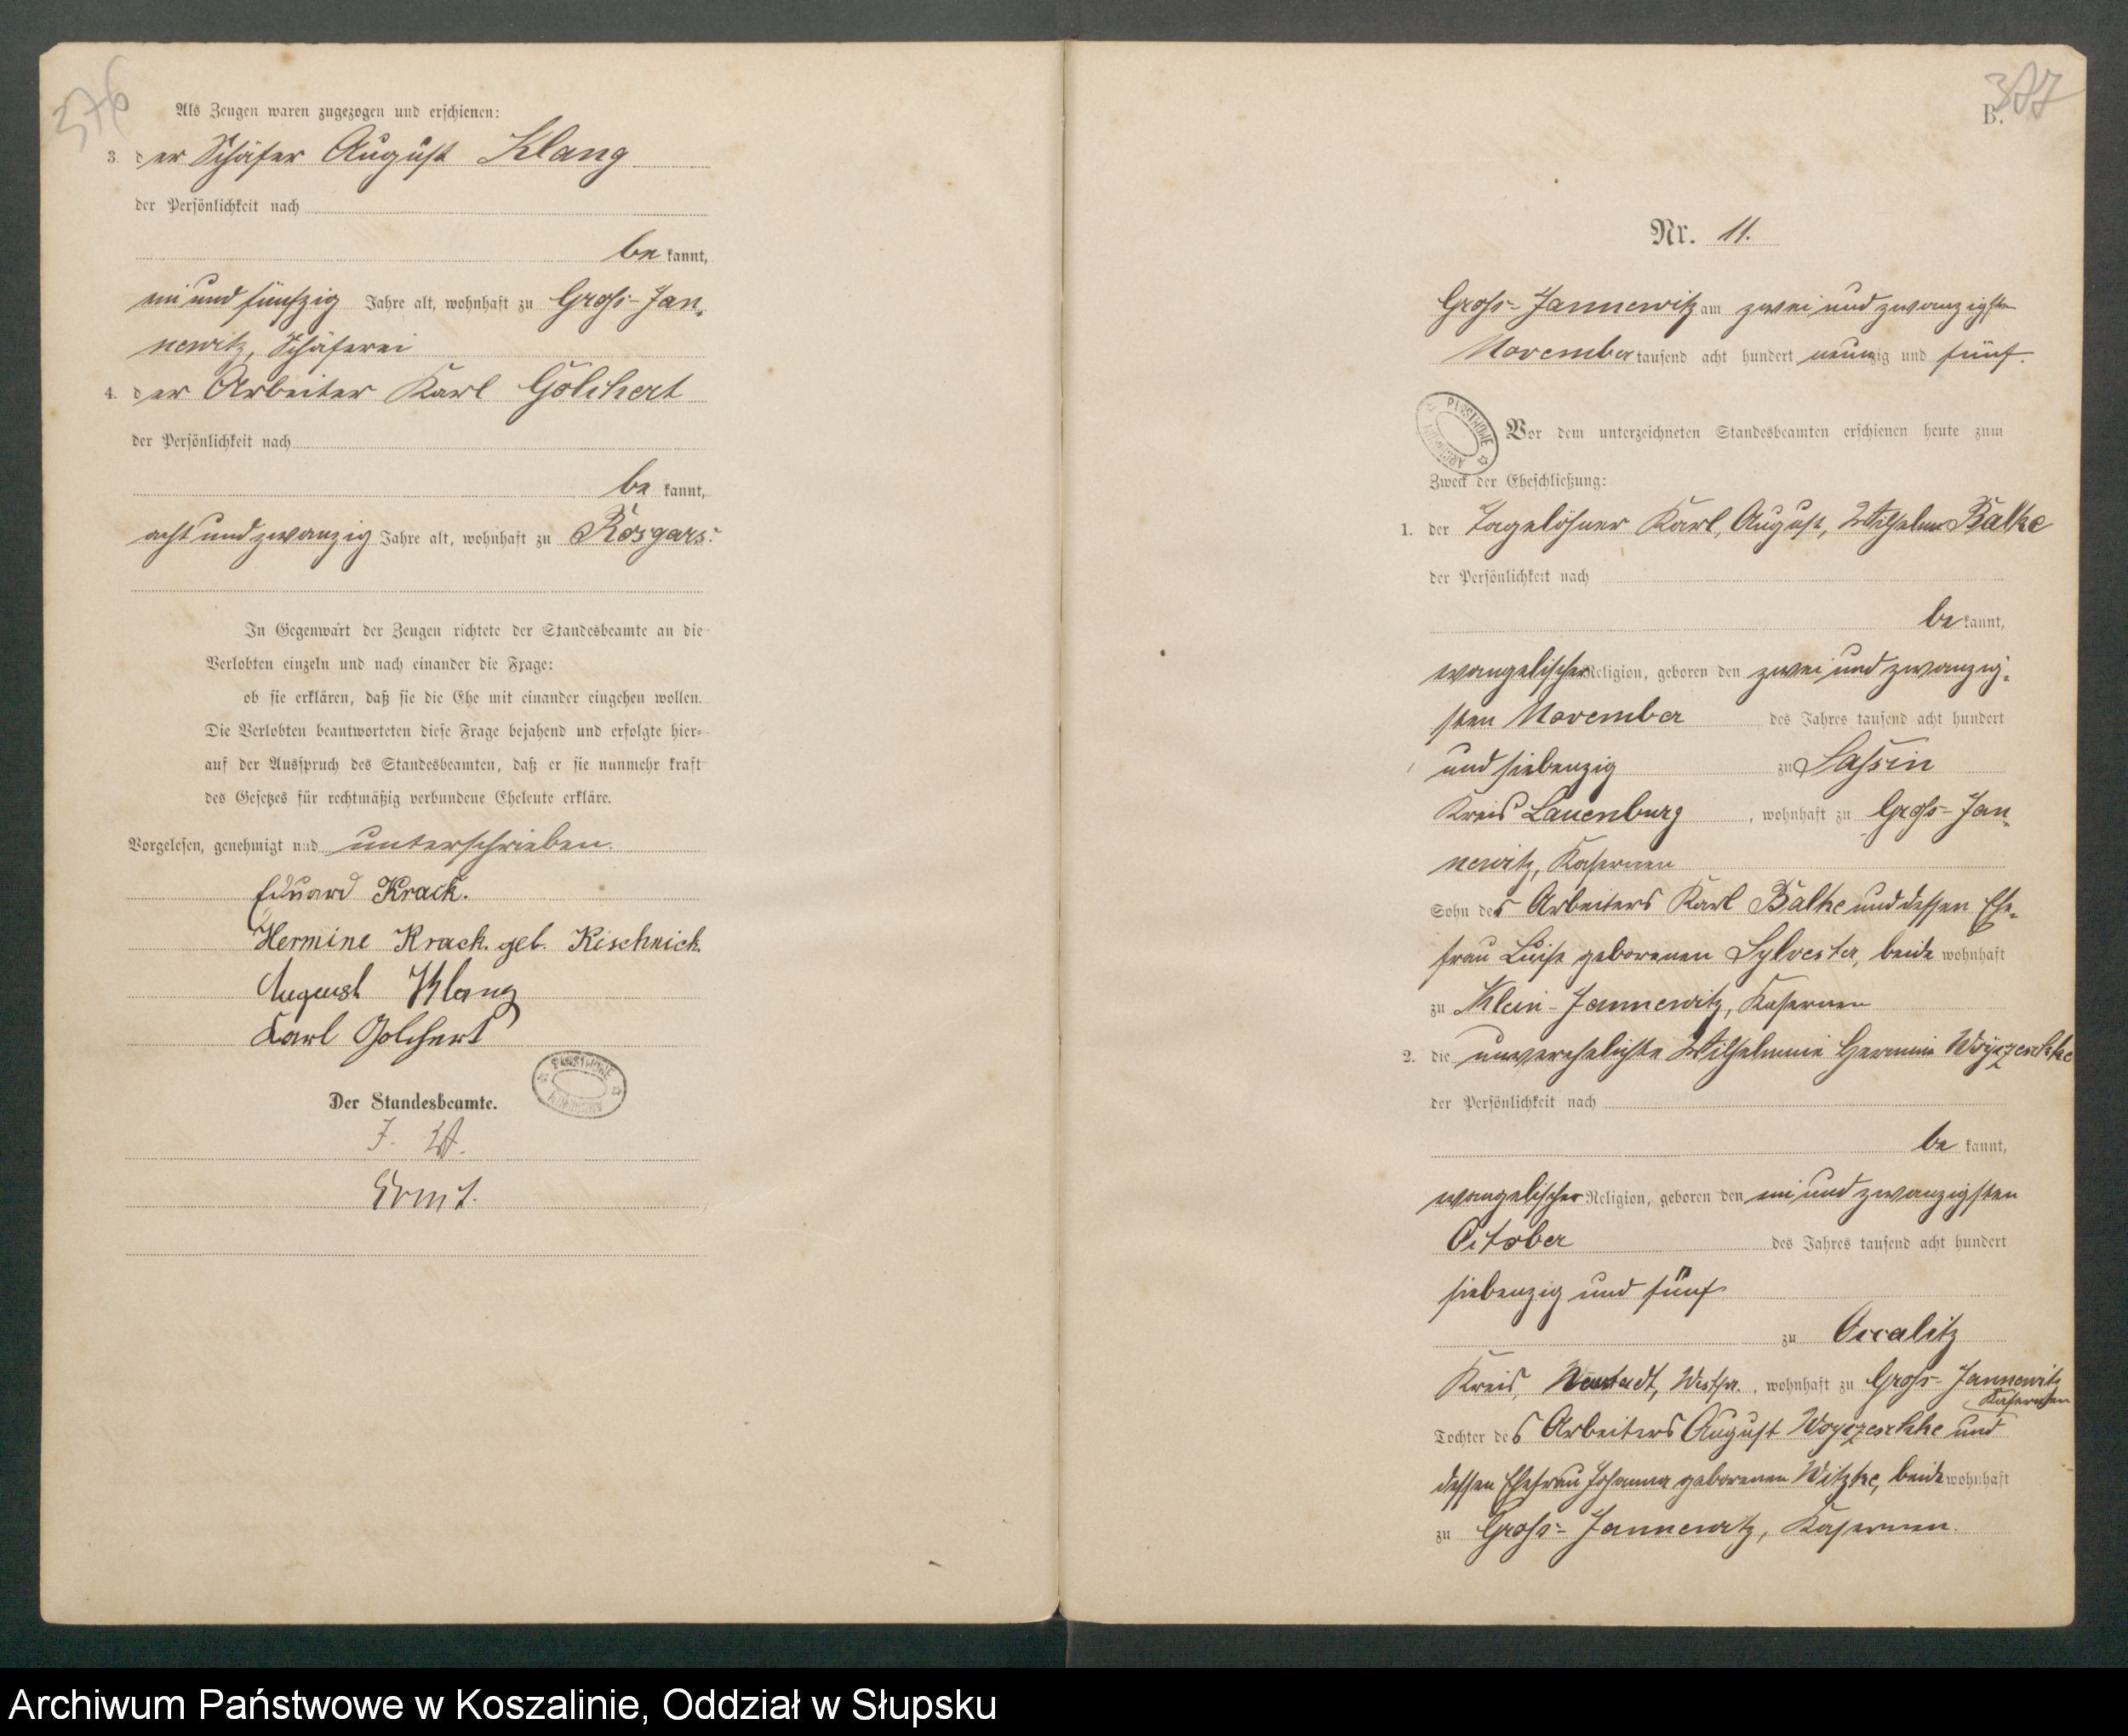 376
Als Zeugen waren zugezogen und erschienen:
3. der Schäfer August Klang
der Persönlichkeit nach
be kannt,
ein und fünfzig Jahre alt, wohnhaft zu Groß-Jan-
newitz, Schäferei
4. der Arbeiter Karl Golchert
der Persönlichkeit nach
be kannt,
acht und zwanzig Jahre alt, wohnhaft zu Rosgars.
In Gegenwart der Zeugen richtete der Standesbeamte an die
Verlobten einzeln und nach einander die Frage:
ob sie erklären, daß sie die Ehe mit einander eingehen wollen.
Die Verlobten beantworteten diese Frage bejahend und erfolgte hier-
auf der Ausspruch des Standesbeamten, daß er sie nunmehr kraft
des Gesetzes für rechtmäßig verbundene Eheleute erkläre.
Vorgelesen, genehmigt und unterschrieben.
Eduard Krack.
Hermine Krack. geb. Kischnick.
August Klang
Karl Golchert
Der Standesbeamte.
J. V.
PAŃSTWOWE ARCHIWUM
377
B.
Nr. 11.
Groß-Jannewitz am zwei und zwanzigsten
November tausend acht hundert neunzig und fünf.
PAŃSTWOWE ARCHIWUM
Vor dem unterzeichneten Standesbeamten erschienen heute zum
Zweck der Eheschließung:
1. der Tagelöhner Karl, August, Wilhelm Balke
der Persönlichkeit nach
be kannt,
evangelischer Religion, geboren den zwei und zwanzig-
sten November des Jahres tausend acht hundert
und siebenzig zu Sassin
Kreis Lauenburg, wohnhaft zu Groß-Jan-
newitz, Kasernen
Sohn des Arbeiters Karl Balke und dessen Ehe-
frau Luise geborenen Sylvester, beide wohnhaft
zu Klein-Jannewitz, Kasernen
2. die unverehelichte Wilhelmine Hermine Woyczeschke
der Persönlichkeit nach
be kannt,
evangelischer Religion, geboren den ein und zwanzigsten
October des Jahres tausend acht hundert
siebenzig und fünf
zu Occalitz
Kreis, Neustadt, Westpr., wohnhaft zu Groß-Jannewitz
Kasernen
Tochter des Arbeiters August Woyczeschke und
dessen Ehefrau Johanna geborenen Witzke, beide wohnhaft
zu Groß-Jannewitz, Kasernen.
Archiwum Państwowe w Koszalinie, Oddział w Słupsku